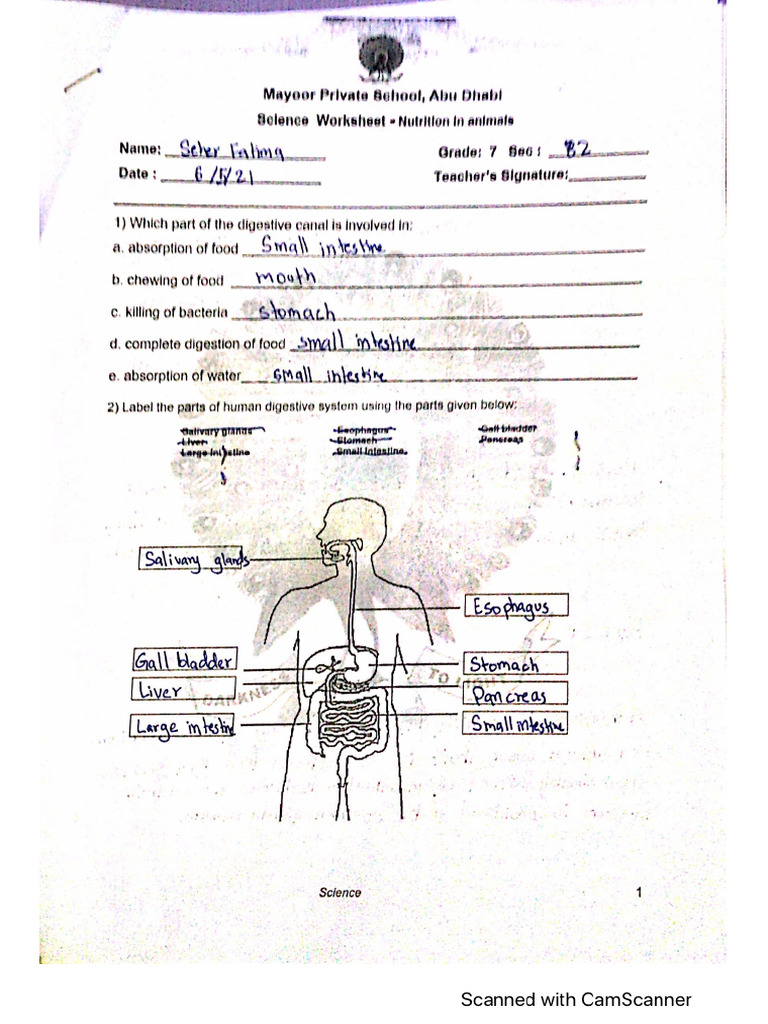 Mayoor Private School, Abu Dhabi
Science Worksheet - Nutrition in animals
Name: Seher Fatima Grade: 7 Sec: B2
Date: 6/5/21 Teacher's Signature:
1) Which part of the digestive canal is involved in:
a. absorption of food Small intestine
b. chewing of food mouth
c. killing of bacteria stomach
d. complete digestion of food small intestine
e. absorption of water small intestine
2) Label the parts of human digestive system using the parts given below:
Salivary glands Esophagus Gall bladder
Liver Stomach Pancreas
Large Intestine Small Intestine.
Salivary glands
Esophagus
Gall bladder Stomach
Liver Pancreas
Large intestine Small intestine
DARKNESS TO LIGHT
Science 1
Scanned with CamScanner